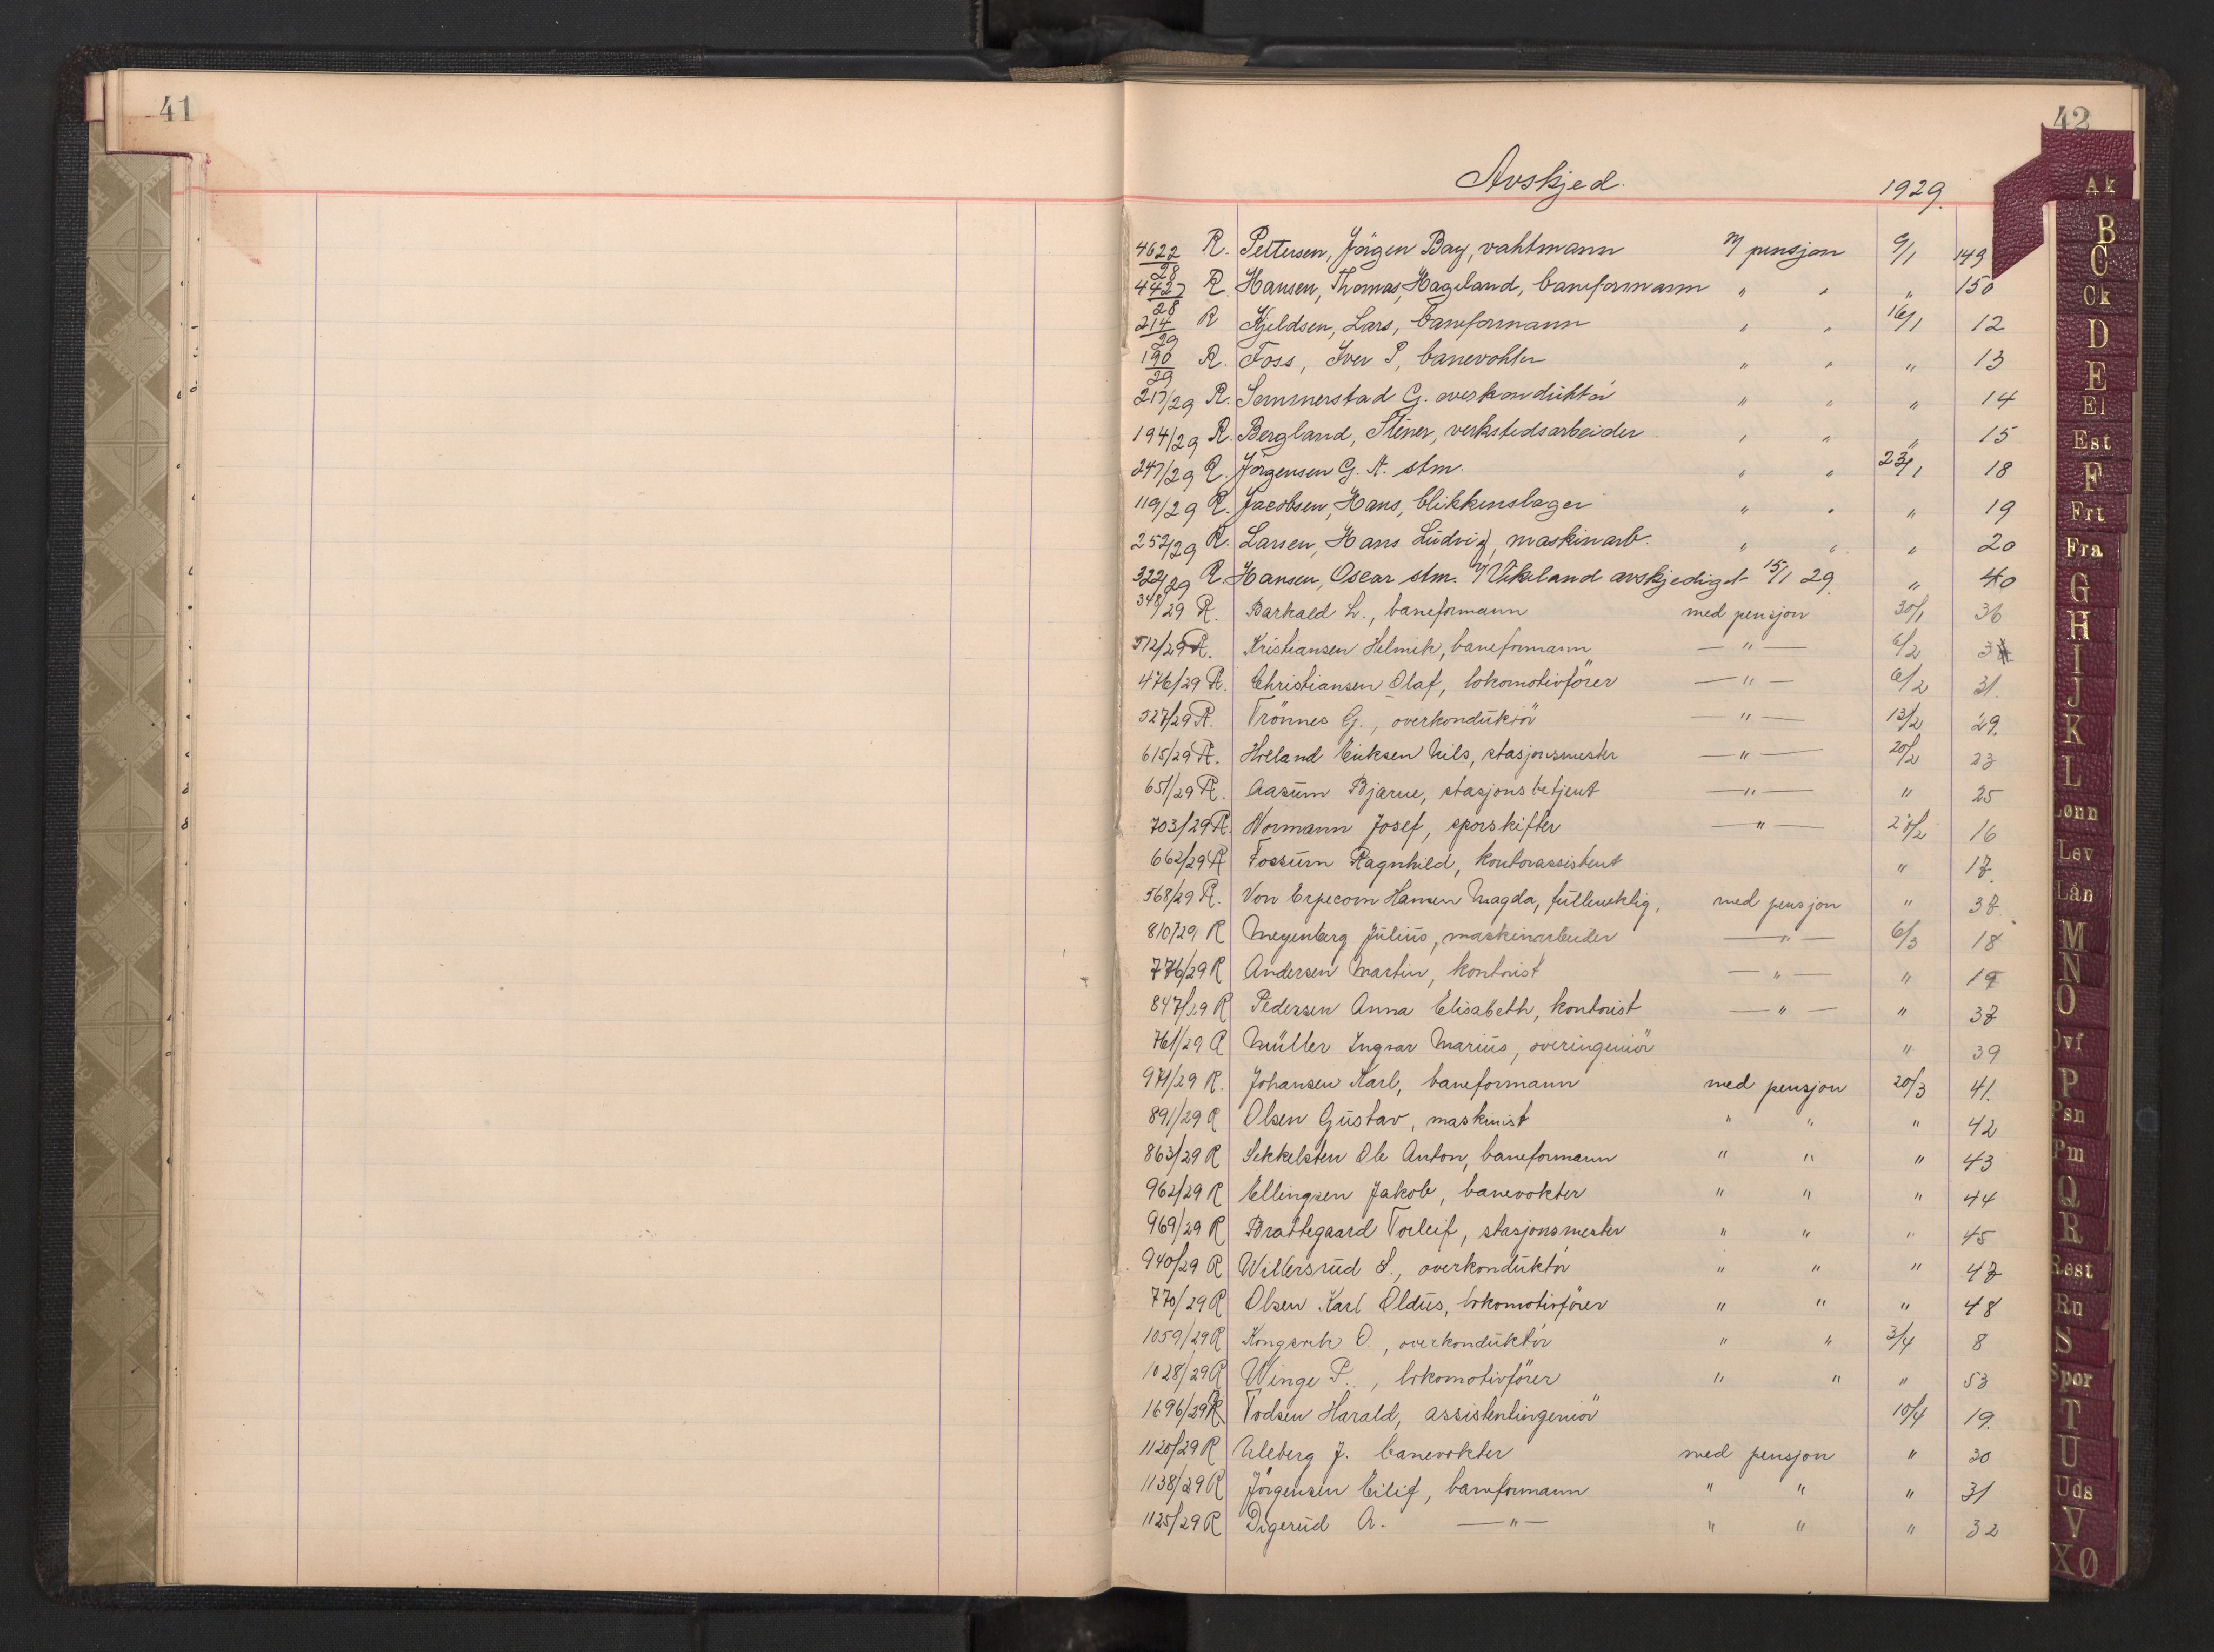 41
42
Avskjed. 1929.
4622/28 R. Pettersen, Jörgen Bay, vahtmann m/ pensjon 9/1 149
4427/28 R. Hansen, Thomas Hageland, baneformann " " " 150
214/29 R Kjeldsen, Lars, baneformann " " 16/1 12
190/29 R. Foss, Iver P, banevokter " " " 13
217/29 R. Sommerstad G. overkonduktör " " " 14
194/29 R. Bergland, Stener, verkstedsarbeider " " " 15
247/29 R. Jörgensen G. A. stm. " " 23/1 18
119/29 R. Jacobsen, Hans, blikkenslager " " " 19
252/29 R. Larsen, Hans Ludvig, maskinarb. " " " 20
322/29 R. Hansen, Oscar stm. v/ Vikeland avskjediget 15/1 29. " 40
348/29 R. Barkald L., baneformann med pensjon 30/1 36
512/29 R. Kristiansen Helmik, baneformann — " — 6/2
476/29 R. Christiansen Olaf, lokomotivförer — " — 6/2 31.
527/29 R. Trönnes G., overkonduktör — " — 13/2 29.
615/29 R. Holland Eriksen Nils, stasjonsmester — " — 20/2 23
651/29 R. Aasum Bjarne, stasjonsbetjent — " — " 25
703/29 R. Normann Josef, sporskifter — " — 28/2 16
662/29 R Fossum Ragnhild, kontorassistent " 17.
568/29 R. Von Erpecom Hansen Magda, fullmektig, med pensjon " 37
810/29 R Meyenberg Julius, maskinarbeider — " — 6/3 18
776/29 R Andersen Martin, kontorist — " — " 19
847/29 R Pedersen Anna Elisabeth, kontorist — " — " 37
761/29 R Müller Ingvar Marius, overingeniör " 39
971/29 R. Johansen Karl, baneformann med pensjon 20/3 41.
891/29 R Olsen Gustav, maskinist " " " 42
863/29 R Sekkelsten Ole Anton, baneformann " " " 43
962/29 R Ellingsen Jakob, banevokter " " " 44
969/29 R Brattegaard Torleif, stasjonsmester " " " 45
940/29 R Willersrud S., overkonduktör " " " 47
770/29 R Olsen Karl Oldus, lokomotivförer " " " 48
1059/29 R Kongsvik O., overkonduktör " " 3/4 8
1028/29 R Winge P., lokomotivförer " " " 53
1696/29 R Todsen Harald, assistentingeniör 10/4 19.
1120/29 R Uleberg J. banevokter med pensjon " 30
1138/29 R Jörgensen Eilif, baneformann " " " 31
1125/29 R Digerud A. — " — " " " 32
Ak
B
C
Ok
D
E
El
Est
F
Frt
Fra
G
H
I
J
K
L
Lønn
Lev
Lån
M
N
O
Ovf
P
Psn
Pm
Q
R
Rest
Ru
S
Spor
T
U
Uds
V
XØ